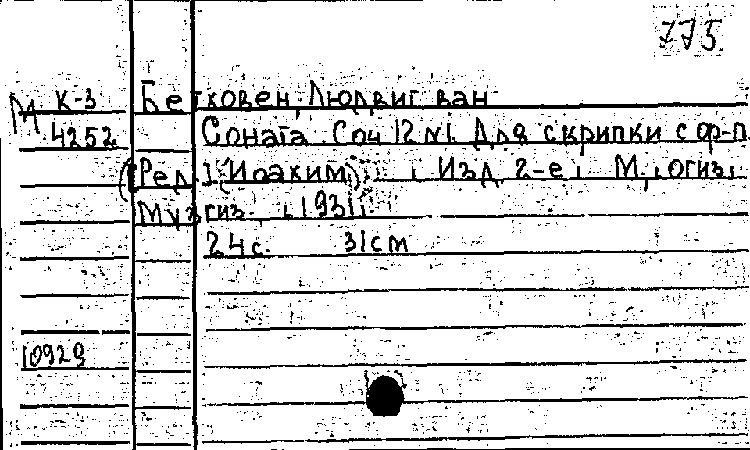 775.
М К-3
4252
Бетховен, Людвиг ван
Соната Соч 12 №1. Для скрипки с ф-п.
(Ред. I (Иоахим). Изд 2-е, М., Огиз,
Музгиз, 1931,
24с. 31см
10929